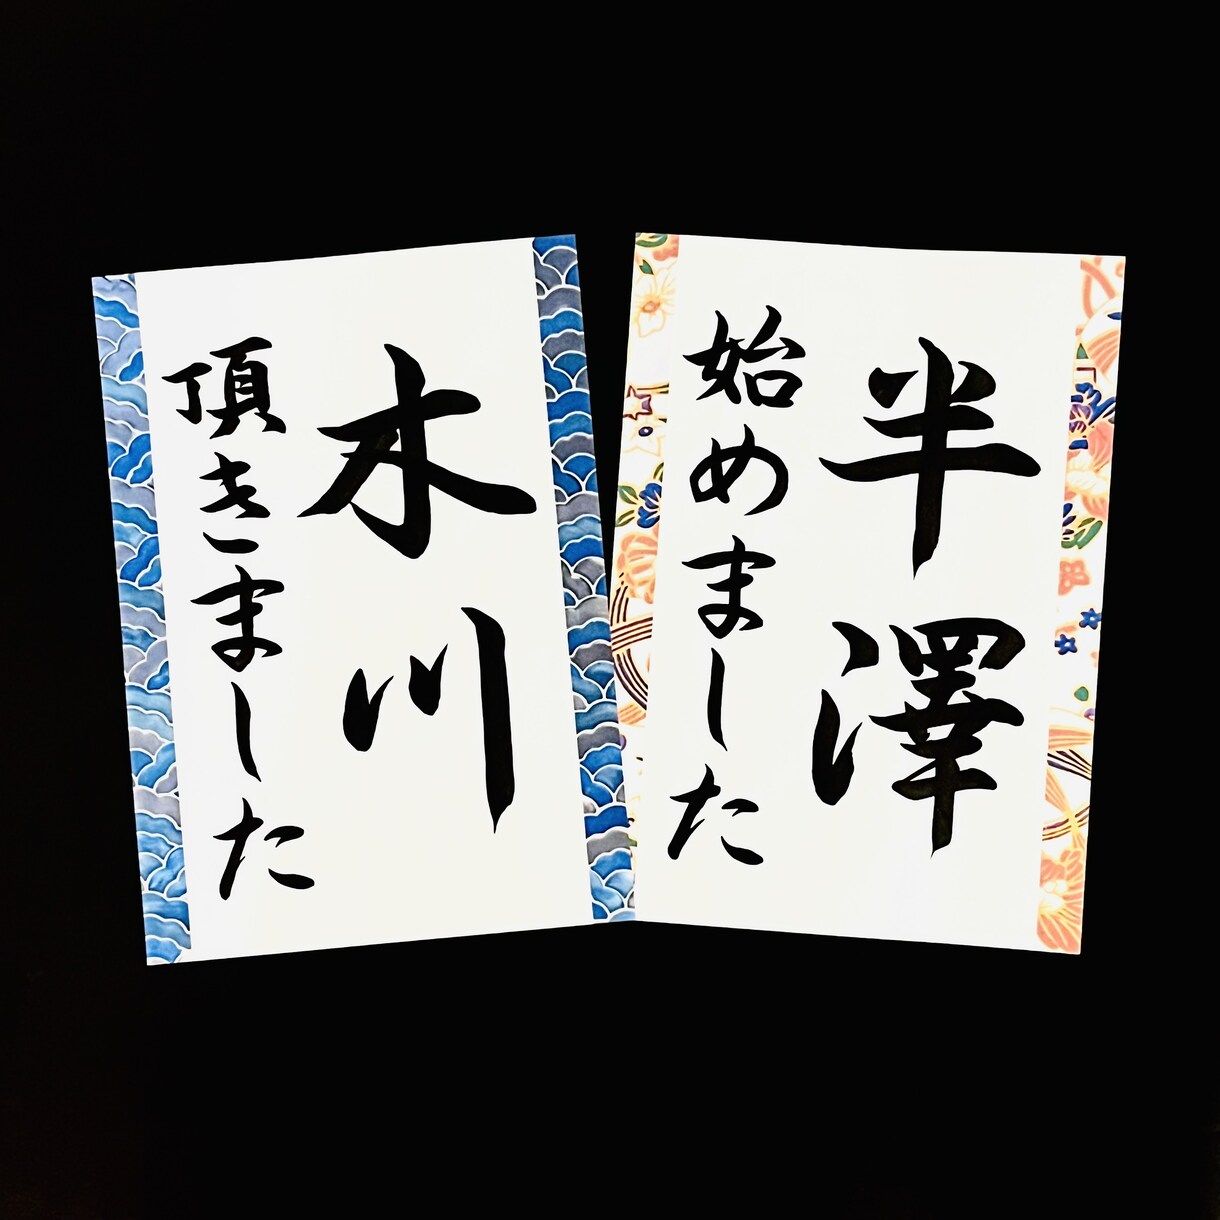 半澤
始めました
木川
頂きました